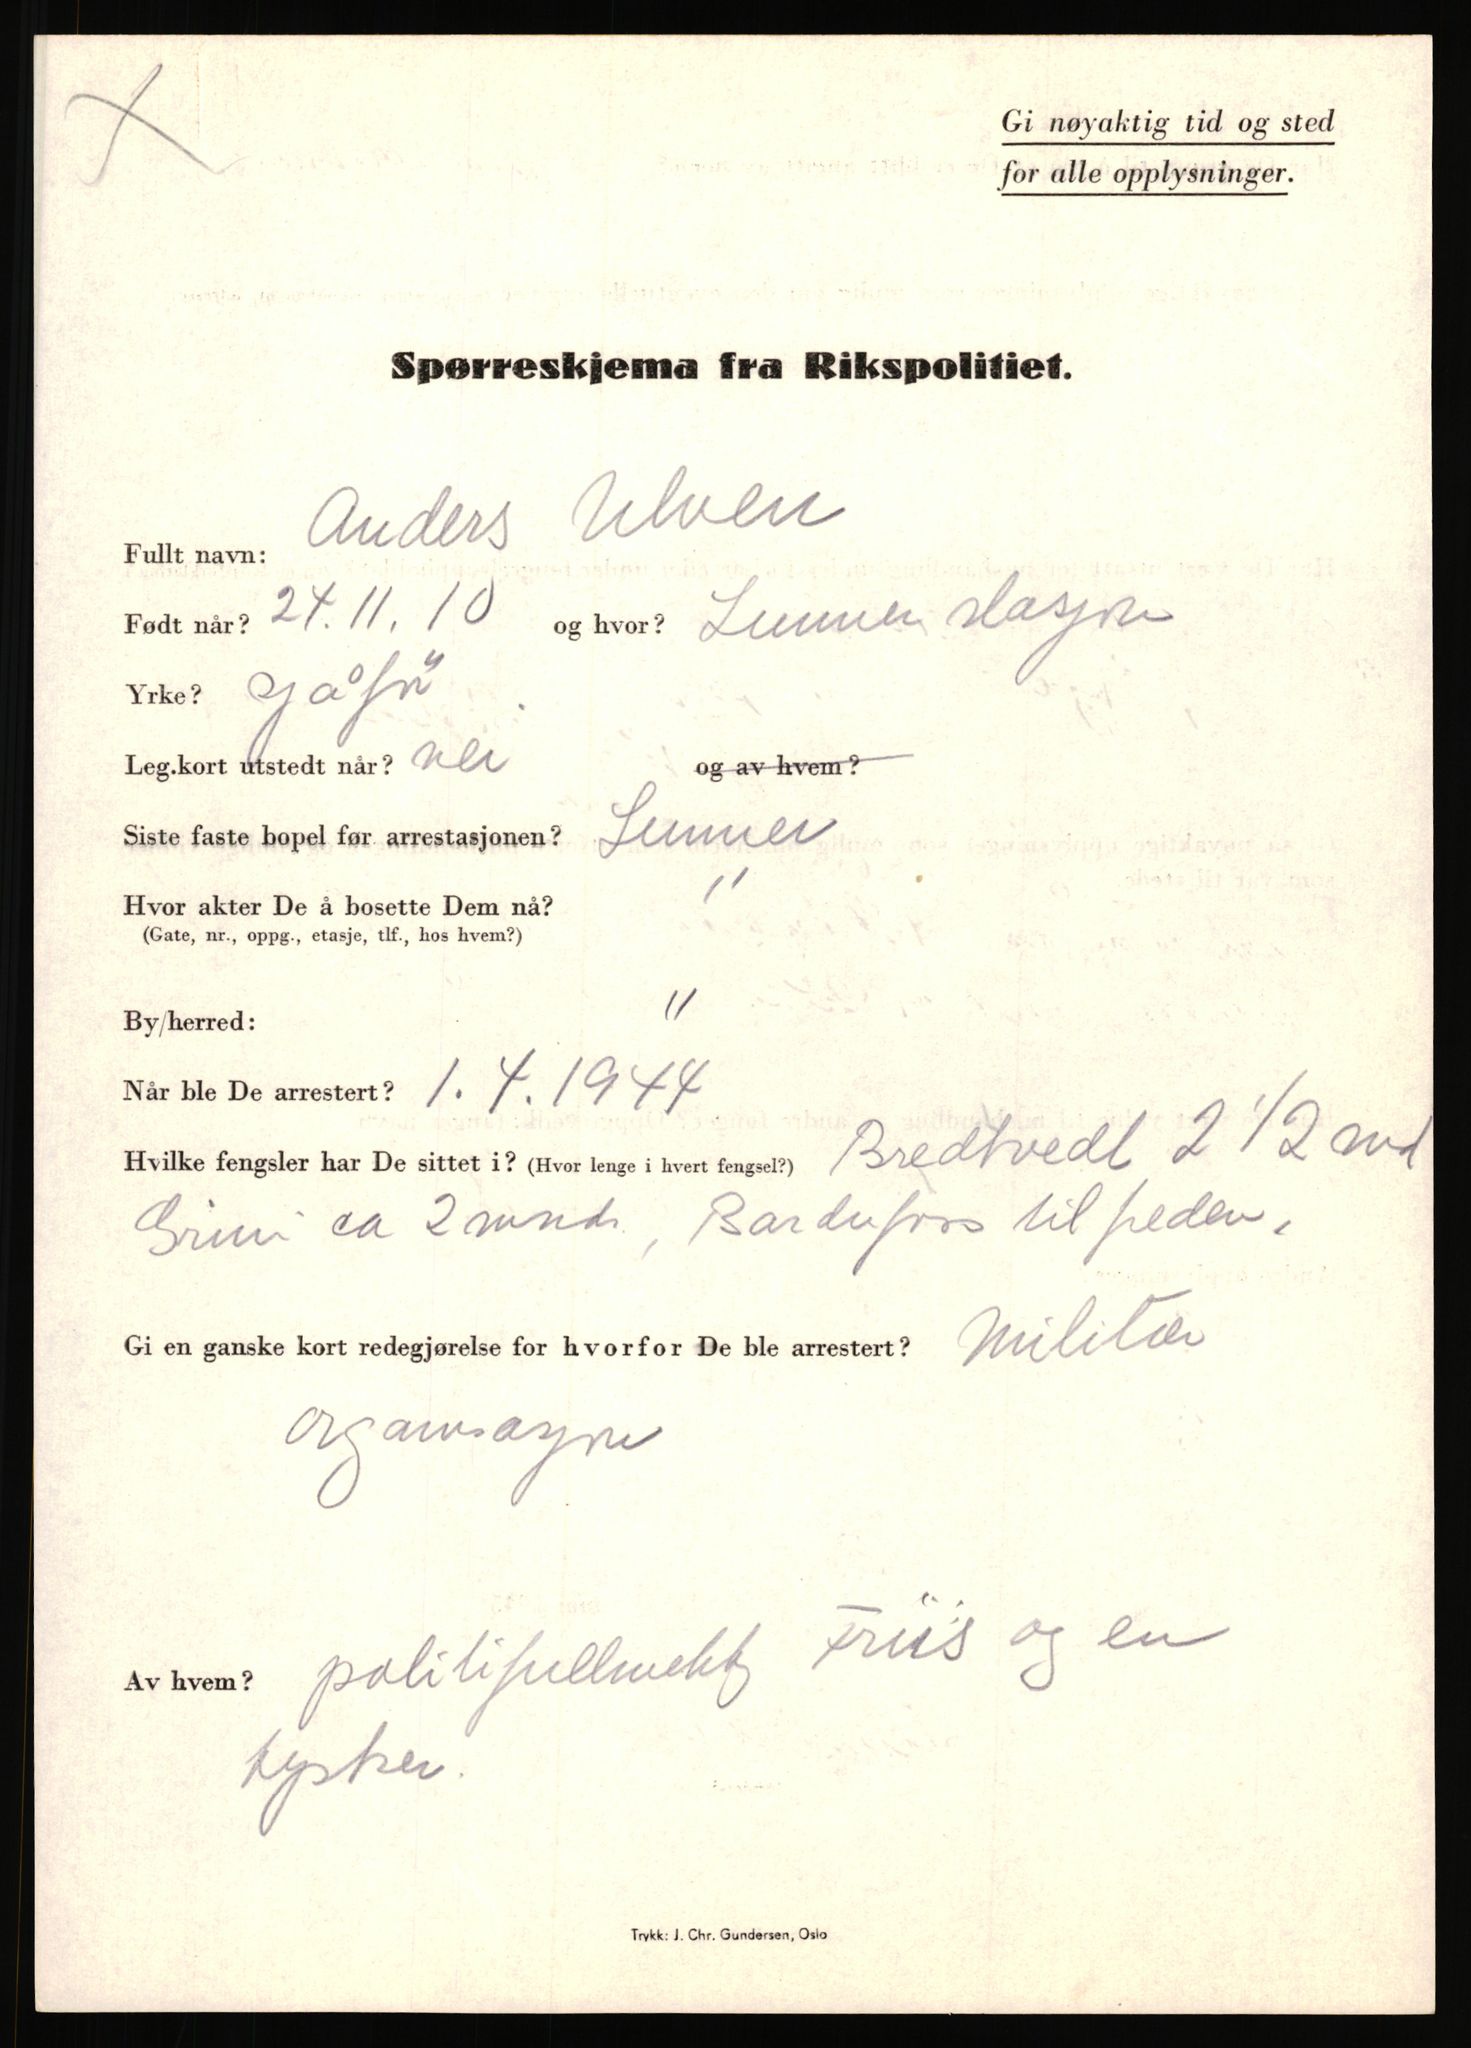 Gi nøyaktig tid og sted
for alle opplysninger.
Spørreskjema fra Rikspolitiet.
Fullt navn: Anders Ulven
Født når? 24.11.10 og hvor? Lunner stasjon
Yrke? sjåfør
Leg.kort utstedt når? nei og av hvem?
Siste faste bopel før arrestasjonen? Lunner
Hvor akter De å bosette Dem nå? "
(Gate, nr., oppg., etasje, tlf., hos hvem?)
By/herred: "
Når ble De arrestert? 1.4.1944
Hvilke fengsler har De sittet i? (Hvor lenge i hvert fengsel?) Bredtvedt 2 1/2 md
Grini ca 2 mndr, Bardufoss til freden.
Gi en ganske kort redegjørelse for hvorfor De ble arrestert? Militær
organisasjon
Av hvem? politifullmektig Friis og en
tysker.
Trykk: J. Chr. Gundersen, Oslo